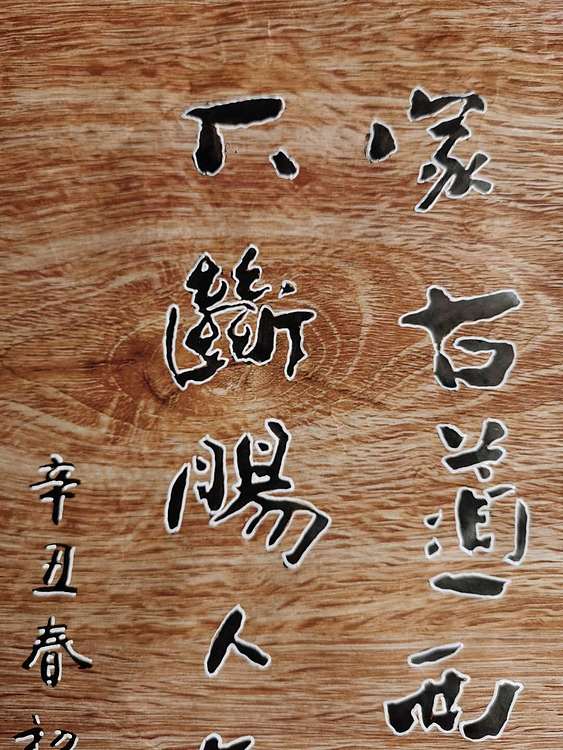 家古道西
下斷腸人
辛丑春初